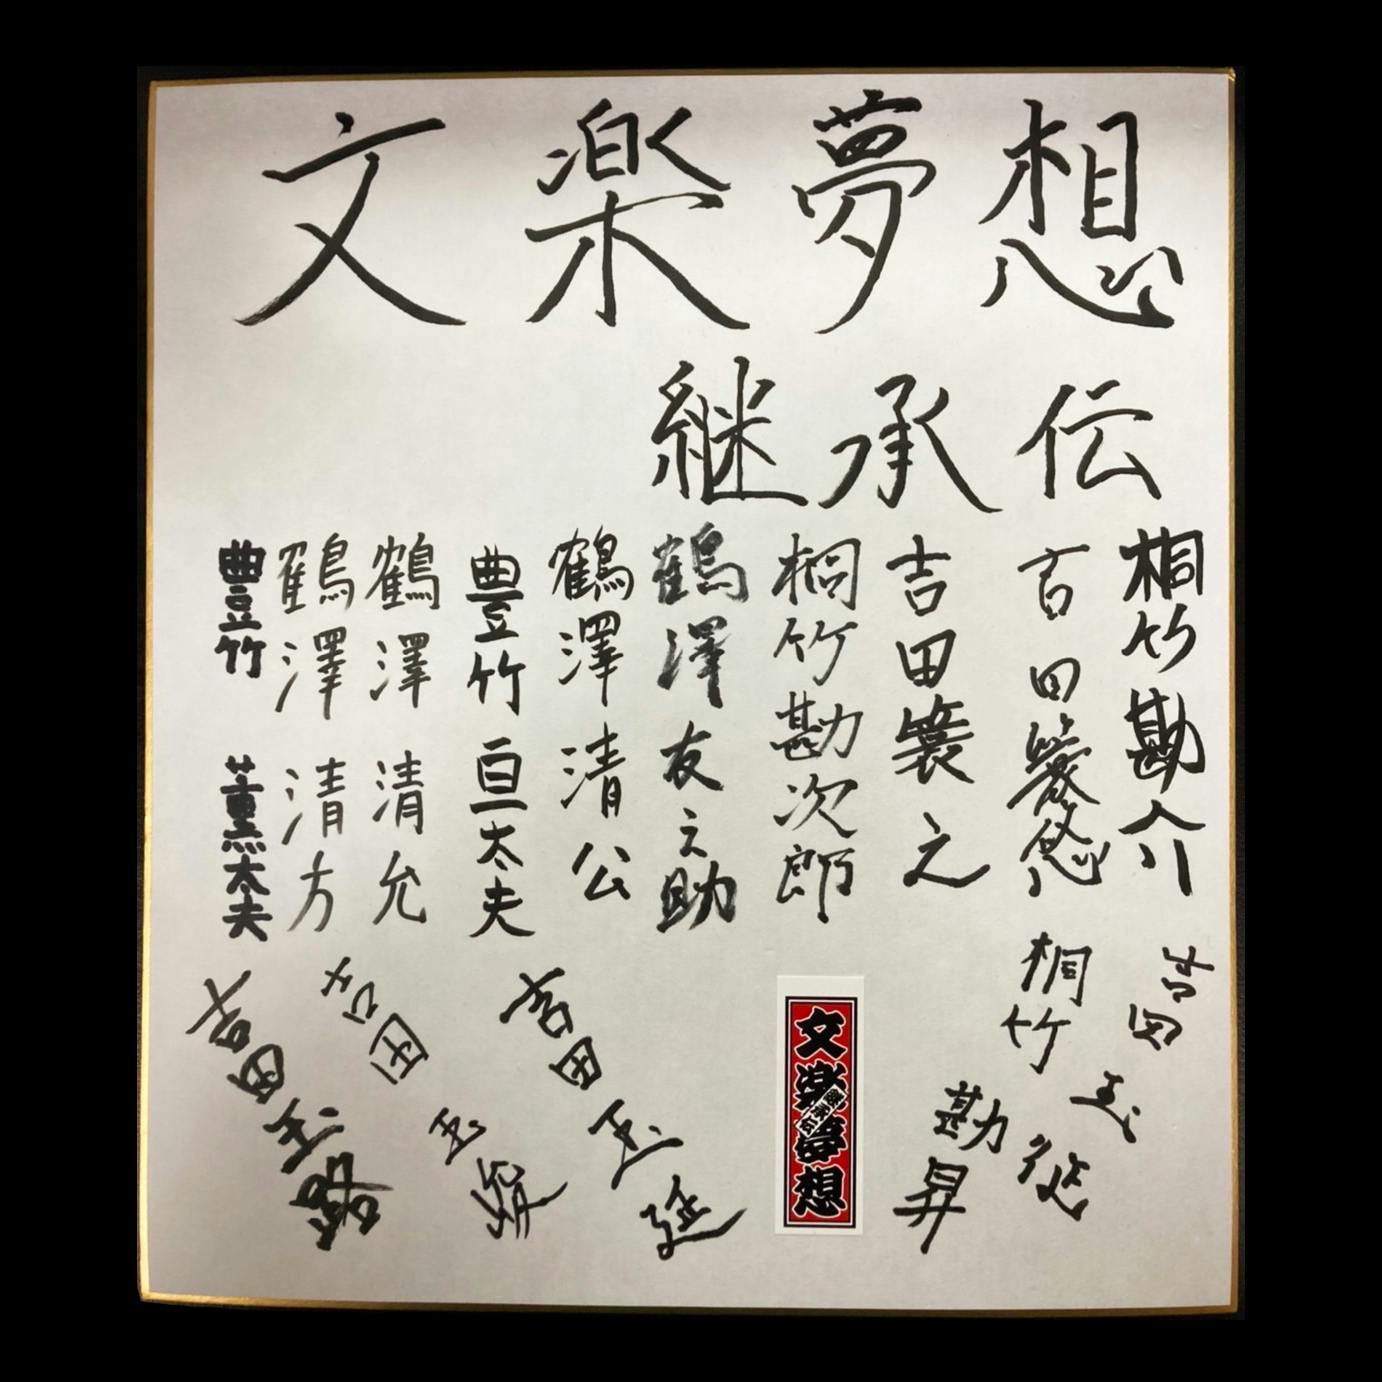 文楽夢想
継承伝
桐竹勘介
吉田簑悠
吉田簑之
桐竹勘次郎
鶴澤友之助
鶴澤清公
豊竹亘太夫
鶴澤清允
鶴澤清方
豊竹薫太夫
吉田玉征
桐竹勘昇
吉田玉延
吉田玉峻
吉田玉路
文楽夢想